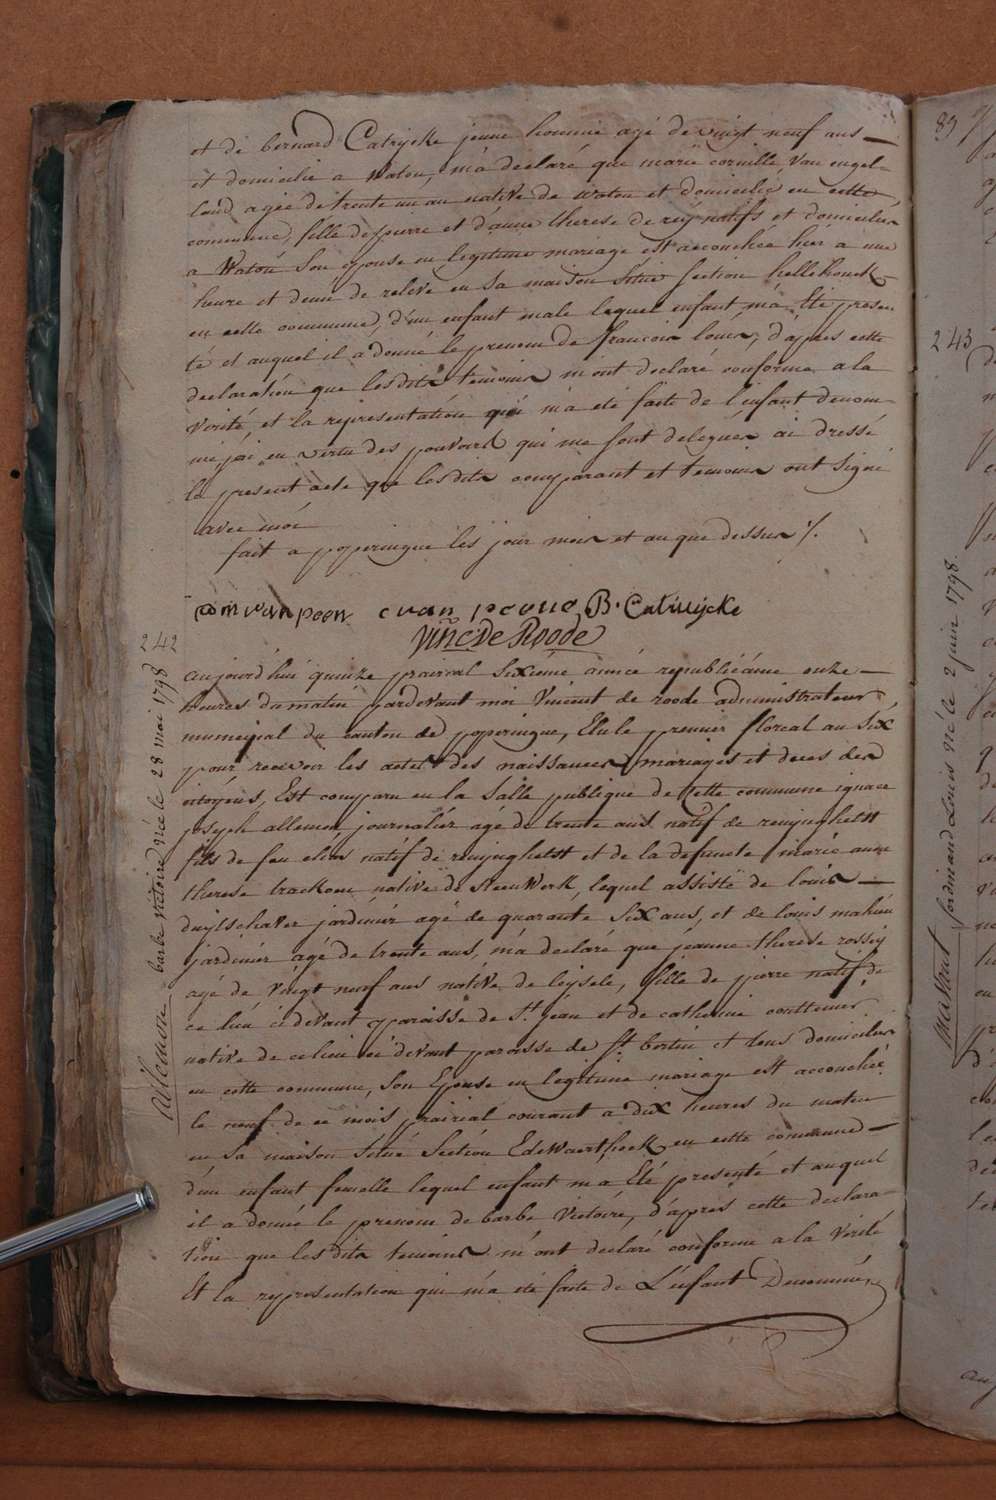 et de bernard Catrycke jeune homme agé de vingt neuf ans
et domicilié a Watou, m'a declaré que marie cornille van engel-
land agée de trente un an native de watou et domicilié en cette
commune, fille de pierre et d'anne therese de rey natifs et domiciliés
a Watou son epouse en legitime mariage est accouchée hier a une
heure et demi de relevé en sa maison situé section hellehouck
en cette commune, d'un enfant male lequel enfant m'a été presen
té et auquel il a donné le prenom de francois louis, d'apres cette
declaration que lesdits temoins m'ont declaré conforme a la
verité, et la representation qui m'a été faite de l'enfant denom-
mé j'ai en vertu des pouvoirs qui me sont delegués ai dressé
le present acte que lesdits comparant et temoins ont signé
avec moi
fait a poperingue les jour mois et an que dessus ./.
van poon c van B. Catriijcke
Vinc. De Roode
242
aujourd'hui quinze prairial sixieme année republicaine onze
heures du matin pardevant moi Vincent de roode administrateur
municipal du canton de poperingue, Elu le premier floreal an six
pour recevoir les actes des naissances, mariages et deces des
citoyens, Est comparu en la salle publique de cette commune ignace
joseph allemon journalier agé de trente ans natif de reninghelst
fils de feu natif de reninghelst et de la defuncte marie anne
therese brackom native de Steenwerk, lequel assisté de louis
duylschaver jardinier agé de quarante six ans, et de louis mahieu
jardinier agé de trente ans, m'a declaré que jeanne therese rossey
agé de vingt neuf ans native de leysele, fille de pierre natif de
ce lieu ci devant paroisse de St. jean et de catherine
native de ce lieu ci devant paroisse de St. bertin et tous domiciliés
en cette commune, son Epouse en legitime mariage est accouchée
le neuf de ce mois prairial courant a dix heures du matin
en sa maison situé section Edewaerthoek en cette commune
d'un enfant femelle lequel enfant m'a Eté presenté et auquel
il a donné le prenom de barbe Victoire, d'apres cette declara-
tion que lesdits temoins m'ont declaré conforme a la verité
Et la representation qui m'a été faite de L'enfant Denommé,
barbe victoire née le 28 mei 1798
89
243
ferdinand Louis né le 2 juin 1798